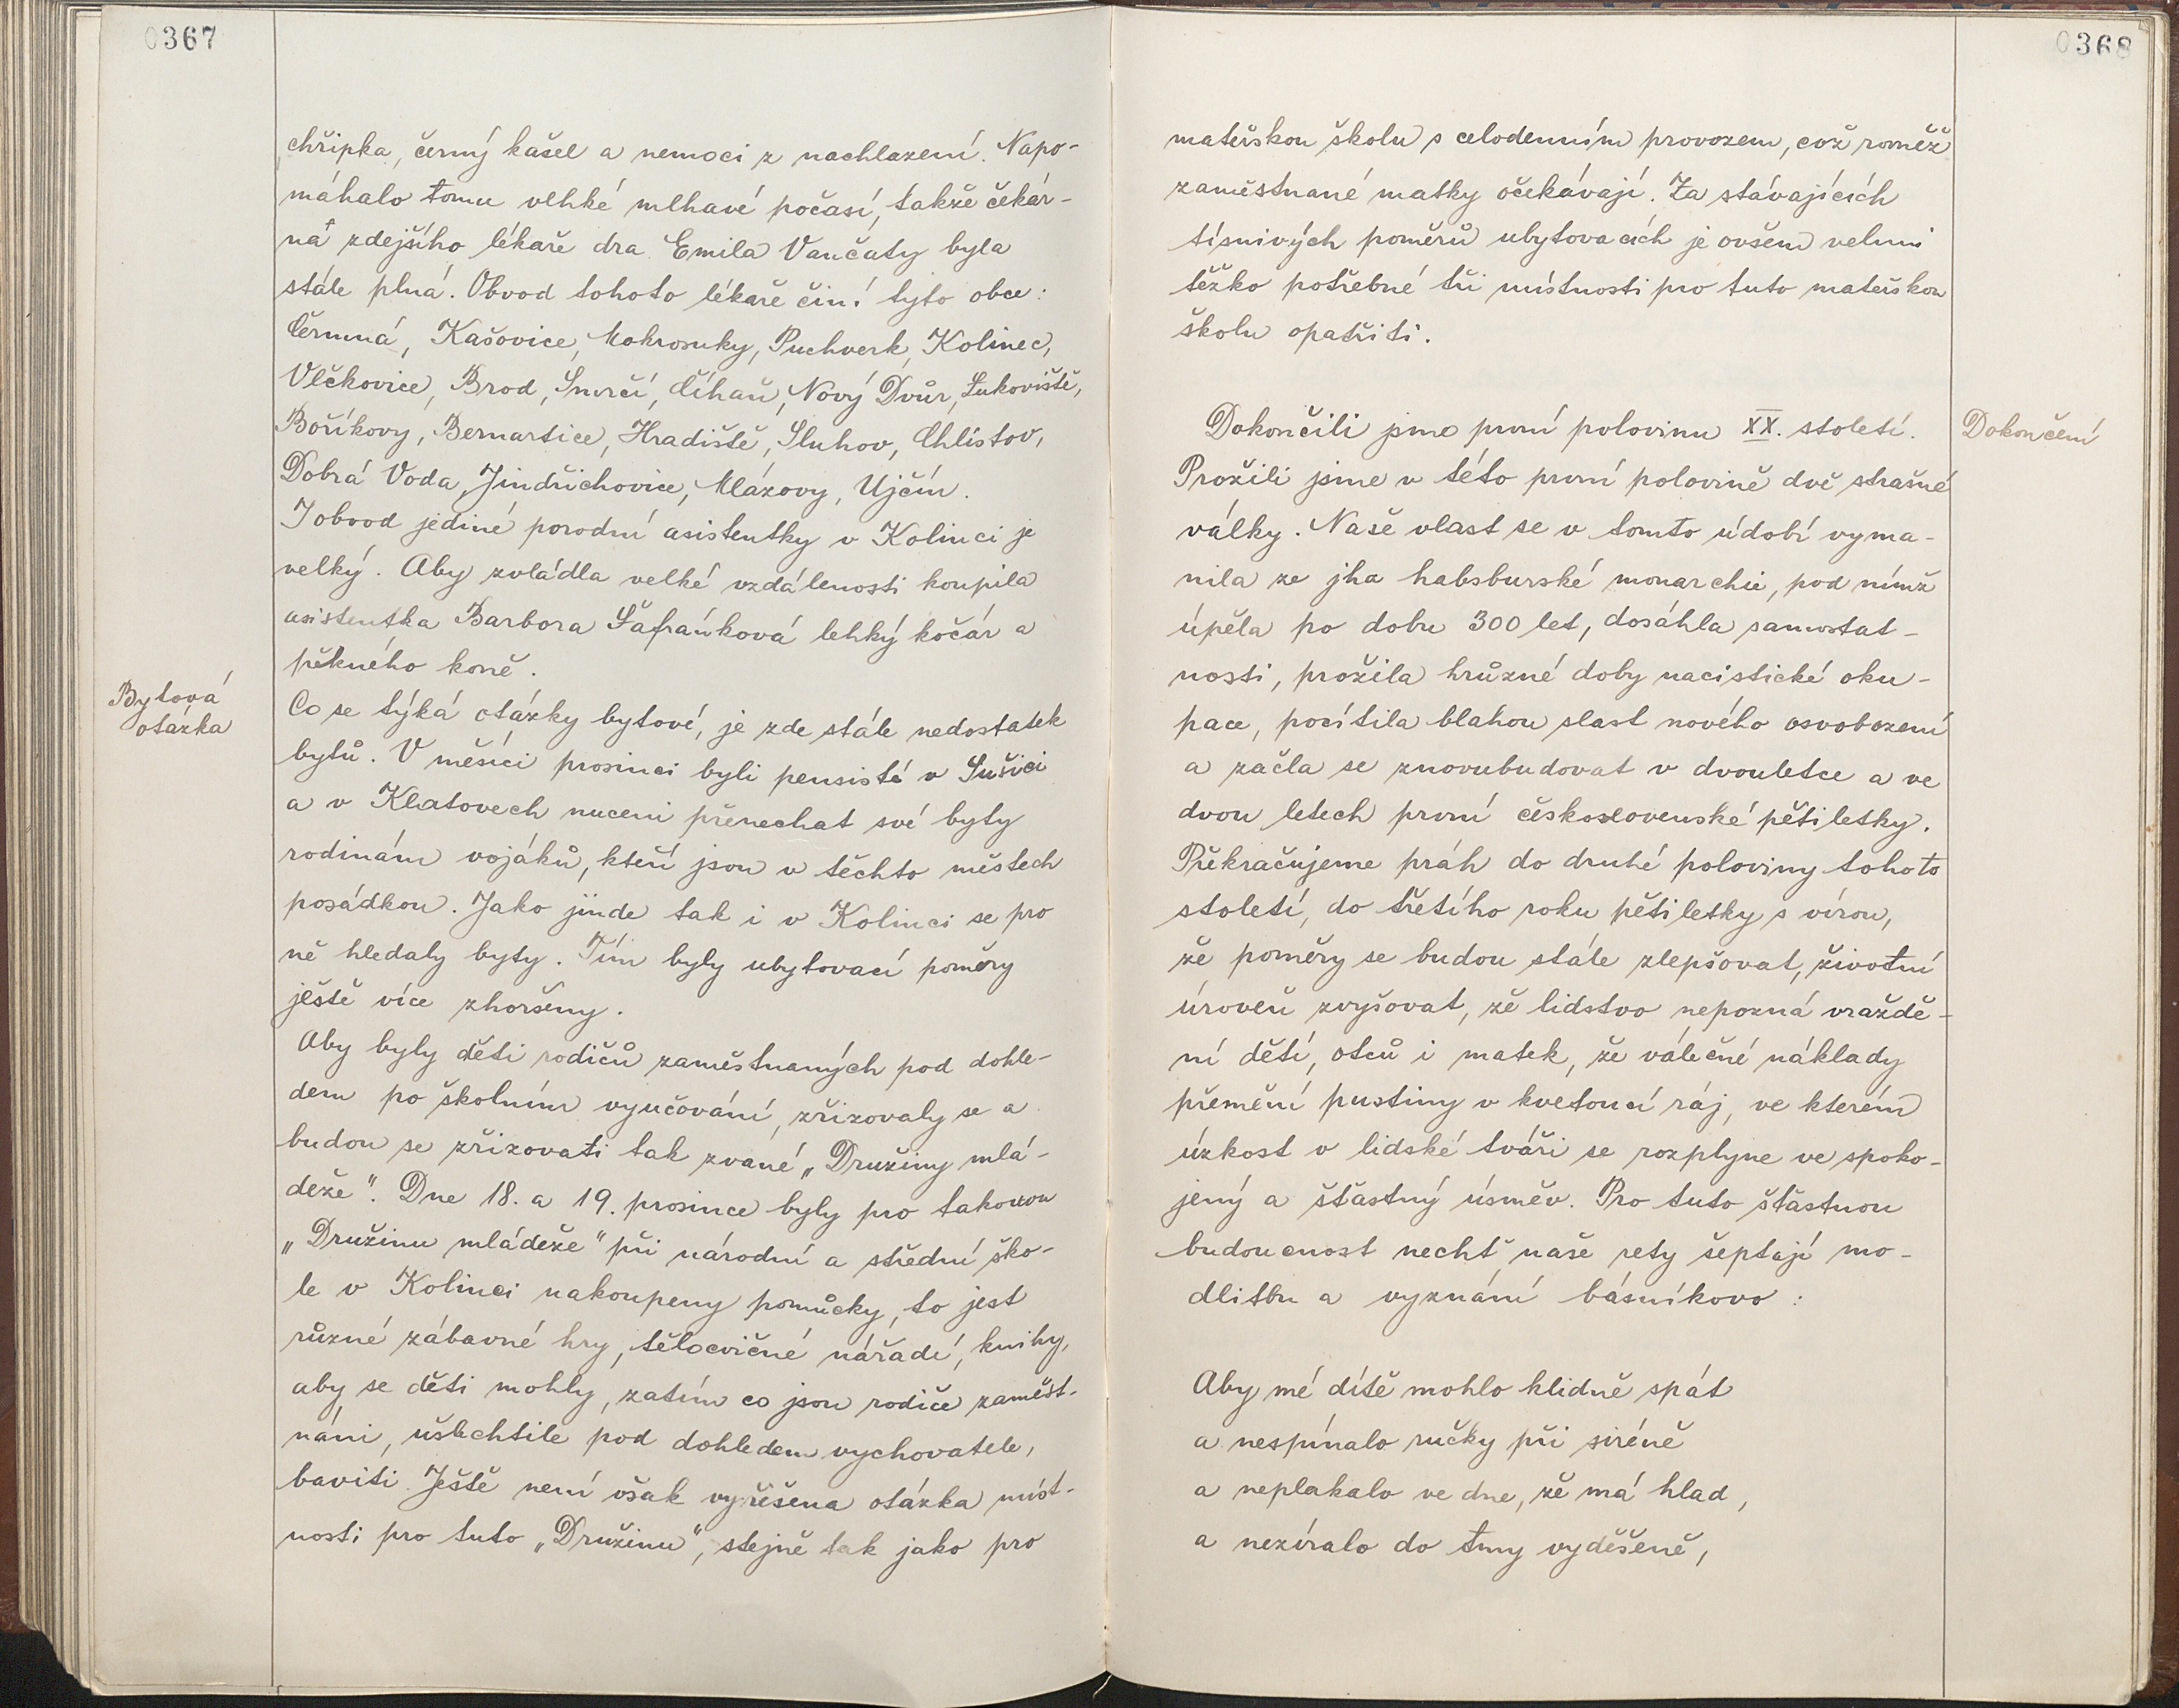 0367
chřipka, černý kašel a nemoci z nachlazení. Napo-
máhalo tomu vlhké mlhavé počasí, takže čekár-
na zdejšího lékaře dra Emila Vančaty byla
stále plná. Obvod tohoto lékaře činí tyto obce:
Čermná, Kašovice, Mokrosuky, Puchverk, Kolinec,
Vlčkovice, Brod, Smrčí, Číhaň, Nový Dvůr, Lukoviště,
Boříkovy, Bernartice, Hradiště, Sluhov, Chlístov,
Dobrá Voda, Jindřichovice, Mlázovy, Ujčín.
I obvod jediné porodní asistentky v Kolinci je
velký. Aby zvládla velké vzdálenosti koupila
asistentka Barbora Šafránková lehký kočár a
pěkného koně.
Bytová
otázka
Co se týká otázky bytové, je zde stále nedostatek
bytů. V měsíci prosinci byli pensisté v Sušici
a v Klatovech nuceni přenechat své byty
rodinám vojáků, kteří jsou v těchto městech
posádkou. Jako jinde tak i v Kolinci se pro
ně hledaly byty. Tím byly ubytovací poměry
ještě více zhoršeny.
Aby byly děti rodičů zaměstnaných pod dohle-
dem po školním vyučování, zřizovaly se a
budou se zřizovati tak zvané „Družiny mlá-
deže". Dne 18. a 19. prosince byly pro takovou
„Družinu mládeže" při národní a střední ško-
le v Kolinci nakoupeny pomůcky, to jest
různé zábavné hry, tělocvičné nářadí, knihy,
aby se děti mohly, zatím co jsou rodiče zaměst-
náni, ušlechtile pod dohledem vychovatele,
baviti. Ještě není však vyřešena otázka míst-
nosti pro tuto „Družinu", stejně tak jako pro
0368
mateřskou školu s celodenním provozem, což rovněž
zaměstnané matky očekávají. Za stávajících
tísnivých poměrů ubytovacích je ovšem velmi
těžko potřebné tři místnosti pro tuto mateřskou
školu opatřiti.
Dokončení
Dokončili jsme první polovinu XX. století.
Prožili jsme v této první polovině dvě strašné
války. Naše vlast se v tomto údobí vyma-
nila ze jha habsburské monarchie, pod nímž
úpěla po dobu 300 let, dosáhla samostat-
nosti, prožila hrůzné doby nacistické oku-
pace, pocítila blahou slast nového osvobození
a začla se znovubudovat v dvouletce a ve
dvou letech první československé pětiletky.
Překračujeme práh do druhé poloviny tohoto
století, do třetího roku pětiletky s vírou,
že poměry se budou stále zlepšovat, životní
úroveň zvyšovat, že lidstvo nepozná vraždě-
ní dětí, otců i matek, že válečné náklady
přemění pustiny v kvetoucí ráj, ve kterém
úzkost v lidské tváři se rozplyne ve spoko-
jený a šťastný úsměv. Pro tuto šťastnou
budoucnost nechť naše rety šeptají mo-
dlitbu a vyznání básníkovo:
Aby mé dítě mohlo klidně spát
a nespínalo ručky při siréně
a neplakalo ve dne, že má hlad,
a nezíralo do tmy vyděšeně,